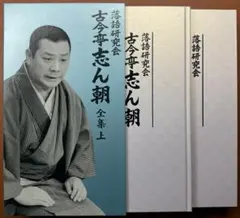 落語研究会
古今亭志ん朝
全集 上
落語研究会
古今亭志ん朝
落語研究会